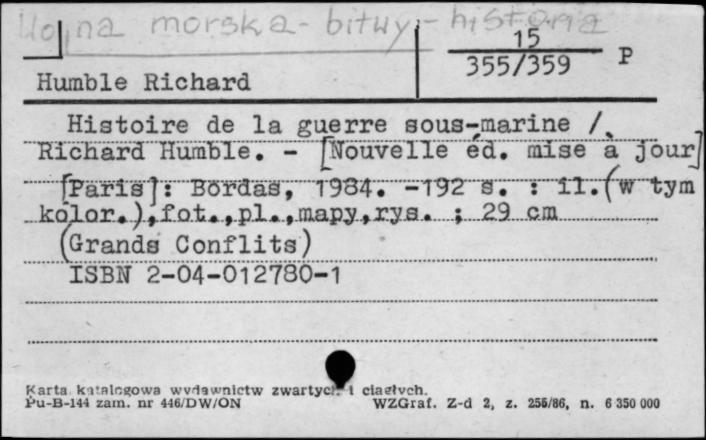 Wojna morska - bitwy - historia
15
355/359 P
Humble Richard
Histoire de la guerre sous-marine /
Richard Humble. - [Nouvelle éd. mise à jour]
[Paris]: Bordas, 1984. -192 s. : il.(w tym
kolor.),fot.,pl.,mapy,rys. ; 29 cm
(Grands Conflits)
ISBN 2-04-012780-1
Karta katalogowa wydawnictw zwartych i ciągłych.
Pu-B-144 zam. nr 446/DW/ON WZGraf. Z-d 2, z. 256/86, n. 6 350 000